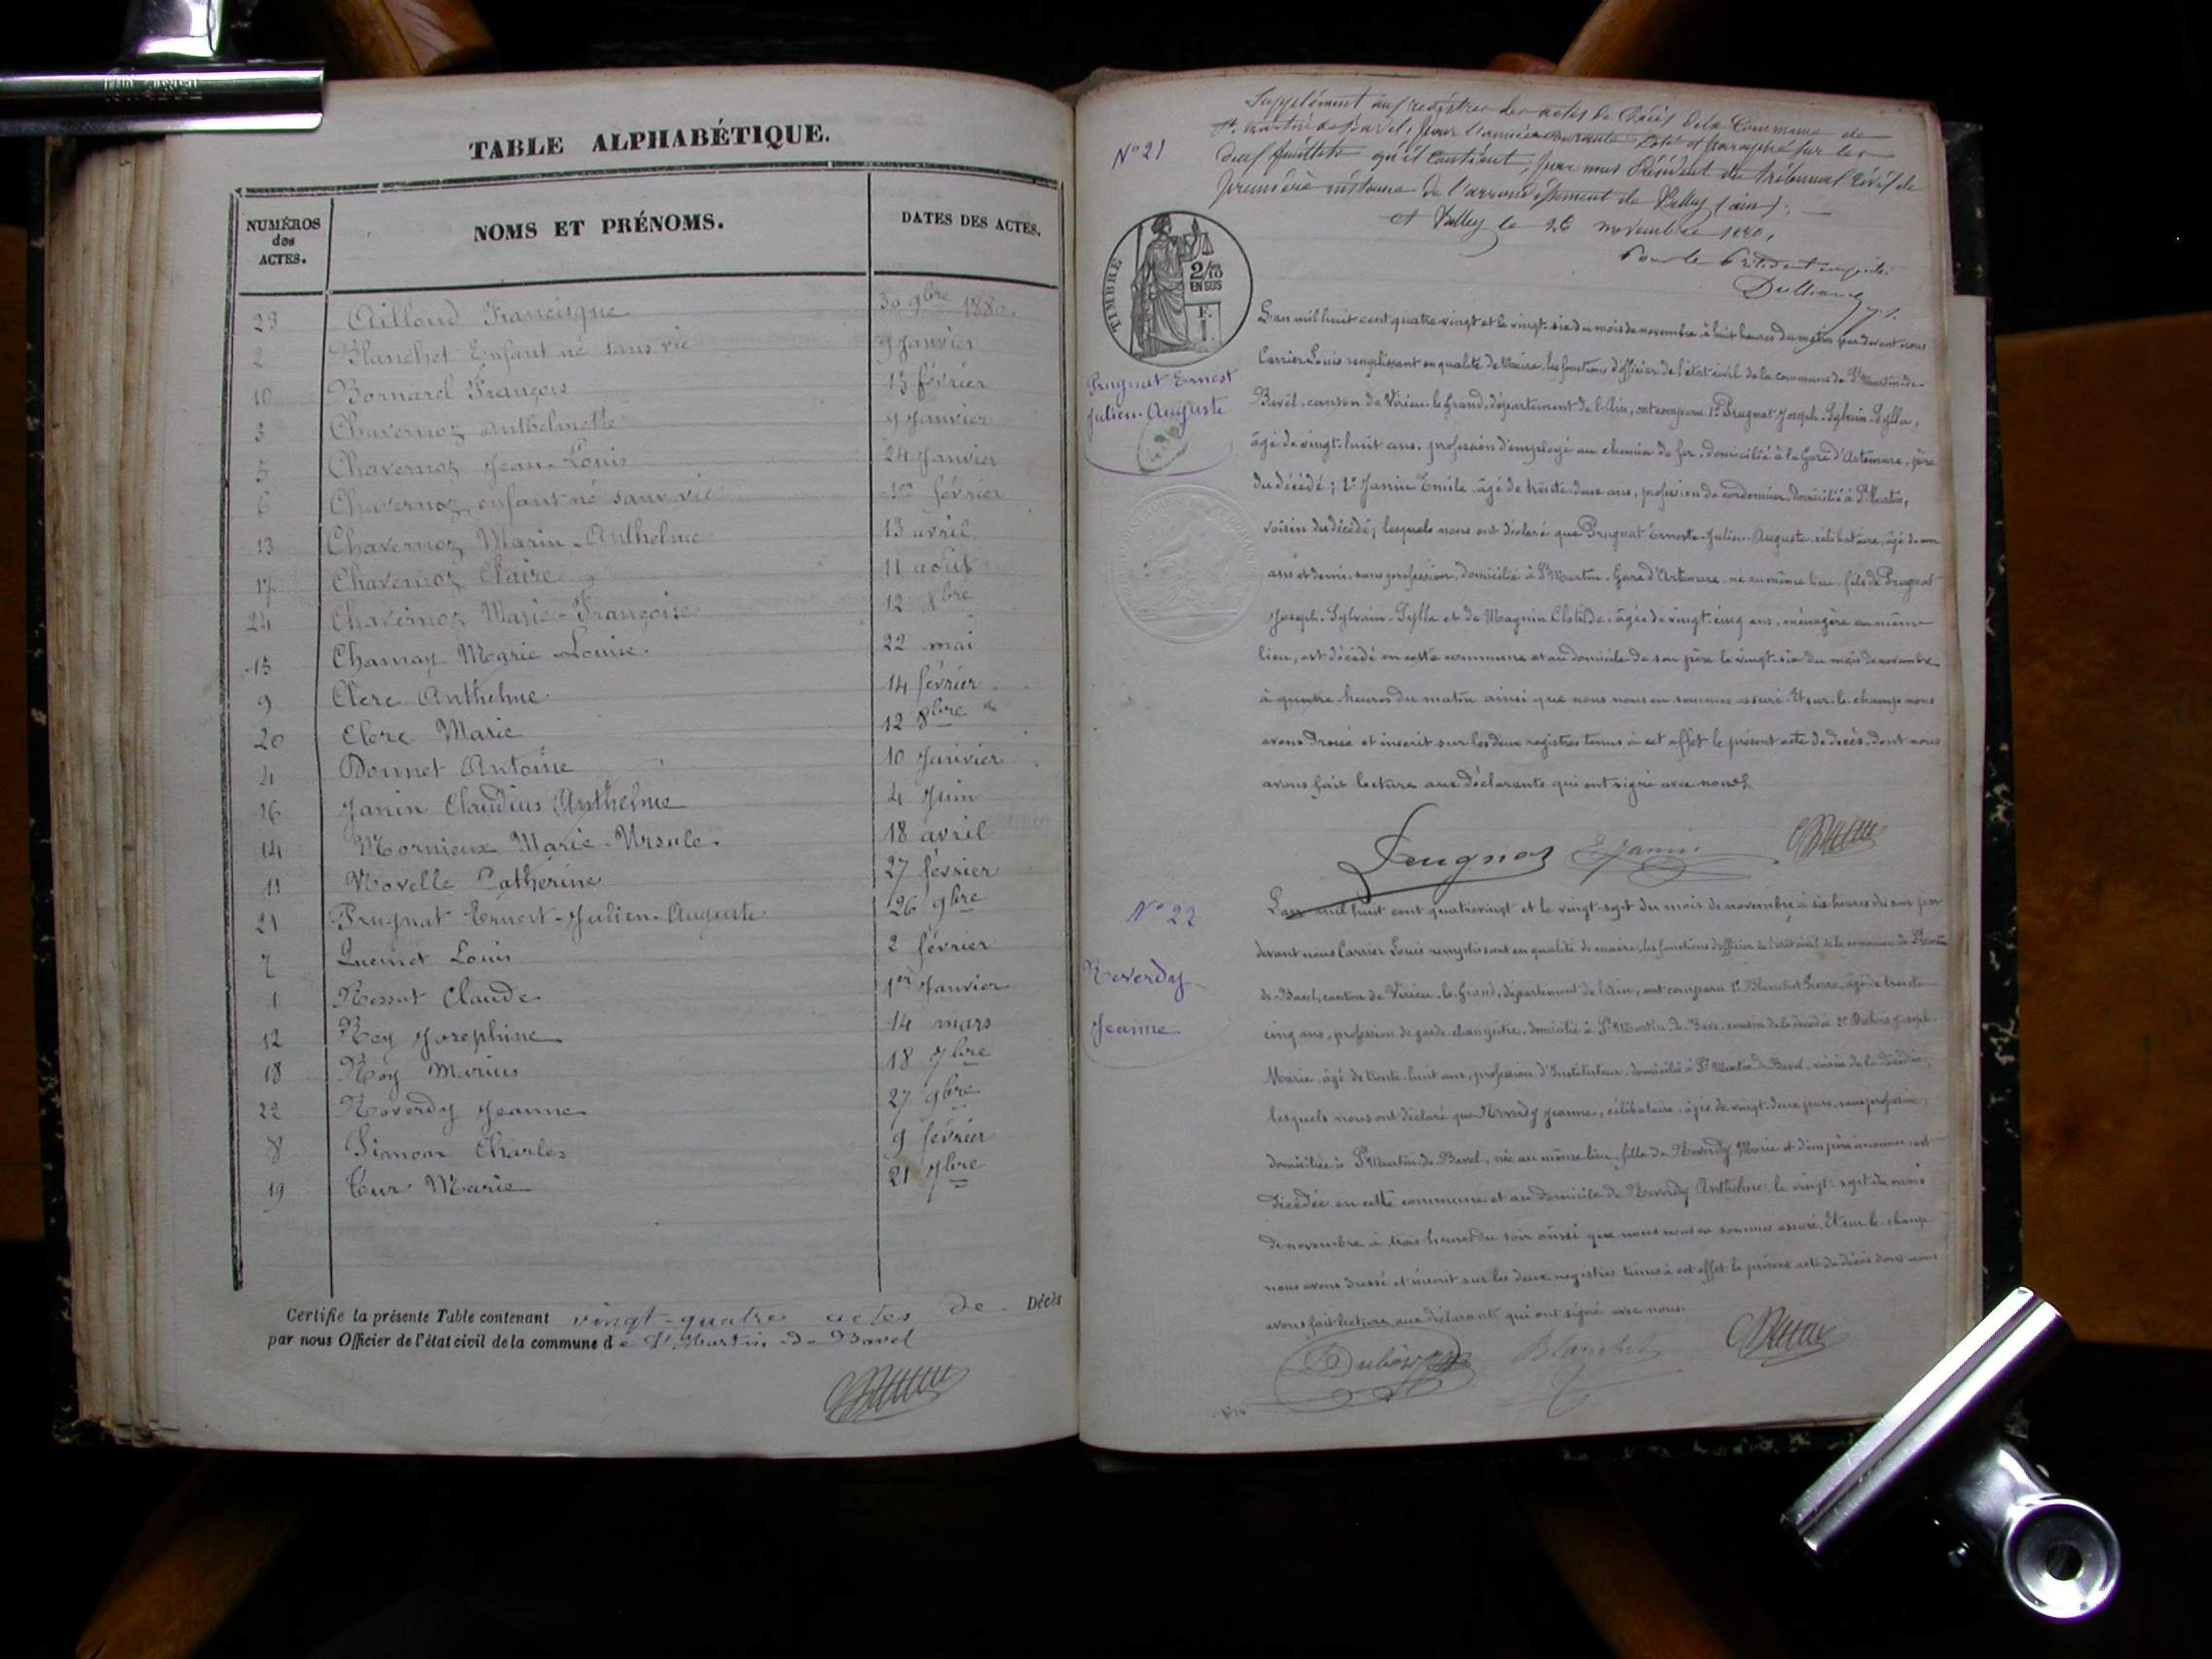 TABLE ALPHABÉTIQUE.
NUMÉROS des ACTES.
NOMS ET PRÉNOMS.
DATES DES ACTES.
23 Ailloud Francisque 30 9bre 1880.
2 Blanchet Enfant né sans vie 9 Janvier
10 Bornard François 15 février
3 Chavernoz Anthelmette 9 Janvier
5 Chavernoz Jean-Louis 24 Janvier
6 Chavernoz enfant né sans vie 1er février
13 Chavernoz Marin-Anthelme 13 avril
17 Chavernoz Claire 11 août
24 Chavernoz Marie-Françoise 12 Xbre
15 Charnay Marie Louise. 22 mai
9 Clerc Anthelme 14 février
20 Clerc Marie 12 8bre
4 Donnet Antoine 10 Janvier
16 Janin Claudius Anthelme 4 Juin
14 Mornieux Marie-Ursule. 18 avril
11 Novelle Catherine 27 février
21 Prugnat Ernest-Julien-Auguste 26 9bre
7 Quemet Louis 2 février
1 Rossat Claude 1er Janvier
12 Rey Josephine 14 mars
18 Roy Marius 18 7bre
22 Reverdy Jeanne 27 9bre
8 Simon Charles 9 février
19 Tur Marie 21 7bre
Certifie la présente Table contenant vingt-quatre actes de Décès
par nous Officier de l'état civil de la commune de St Martin-de-Bavel
Supplément aux registres des actes de Décès de la Commune de
St. Martin de Bavel, pour l'année courante Coté et paraphé sur les
deux feuillets qu'il contient, par nous Président du tribunal Civil de
première instance de l'arrondissement de Belley (ain);
A Belley le 26 novembre 1880,
Pour le Président empêché
No 21
TIMBRE
2/10
EN SUS
F.
1
Prugnat Ernest
Julien-Auguste
L'an mil huit cent quatre vingt et le vingt-six du mois de novembre à huit heures du matin par devant nous
Carrier Louis remplissant en qualité de Maire, les fonctions d'officier de l'état civil de la commune de St Martin-de-
Bavel, canton de Virieu-le-Grand, département de l'Ain, ont comparu 1° Prugnat Joseph-Sylvain-Sylla,
âgé de vingt-huit ans, profession d'employé au chemin de fer, domicilié à la Gare d'Artemare, père
du décédé; 2° Janin Emile âgé de trente-deux ans, profession de cordonnier, domicilié à St Martin,
voisin du décédé; lesquels nous ont déclaré que Prugnat Ernest-Julien-Auguste, célibataire, âgé de un
ans et demi, sans profession, domicilié à St Martin, Gare d'Artemare, né au même lieu, fils de Prugnat
Joseph-Sylvain-Sylla et de Magnin Clotilde, âgée de vingt-cinq ans, ménagère au même
lieu, est décédé en cette commune et au domicile de son père le vingt-six du mois de novembre
à quatre heures du matin ainsi que nous nous en sommes assuré. Et sur-le-champ nous
avons dressé et inscrit sur les deux registres tenus à cet effet le présent acte de décès, dont nous
avons fait lecture aux déclarants qui ont signé avec nous
Prugnat E Janin
No 22
Reverdy
Jeanne
L'an mil huit cent quatrevingt et le vingt-sept du mois de novembre à six heures du soir par
devant nous Carrier Louis remplissant en qualité de maire, les fonctions d'officier de l'état civil de la commune de St Martin
de-Bavel, canton de Virieu-le-Grand, département de l'Ain, ont comparu 1° Blanchet Pierre, âgé de trente-
cinq ans, profession de garde-champêtre, domicilié à St Martin de Bavel, cousin de la décédée 2° Dubois Joseph
Marie, âgé de trente-huit ans, profession d'Instituteur, domicilié à St Martin de Bavel, voisin de la décédée,
lesquels nous ont déclaré que Reverdy Jeanne, célibataire, âgée de vingt-deux jours, sans profession,
domiciliée à St Martin-de-Bavel, née au même lieu, fille de Reverdy Marie et d'un père inconnu est
décédée en cette commune et au domicile de Reverdy Anthelme le vingt-sept du mois
de novembre à trois heures du soir ainsi que nous nous en sommes assuré. Et sur-le-champ
nous avons dressé et inscrit sur les deux registres tenus à cet effet le présent acte de décès dont nous
avons fait lecture aux déclarants qui ont signé avec nous
Dubois Blanchet